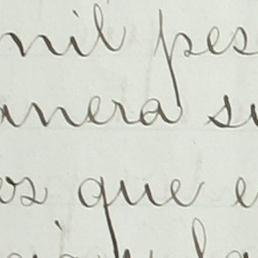 mil pes
mera su
os que e